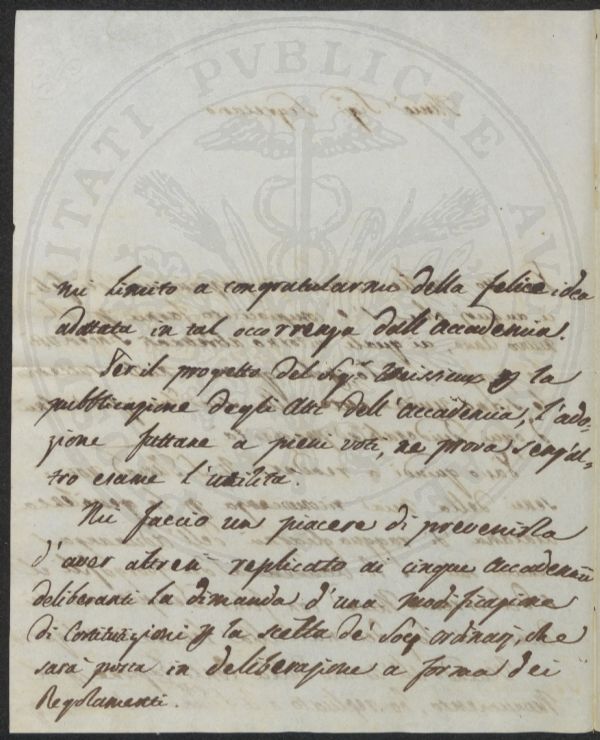 PROSPERITATI PVBLICAE AVGENDAE
mi limito a congratularmi della felice idea
adottata in tal occorrenza dall'Accademia.
Per il progetto del Sigr. Vieusseux p la
pubblicazione degli Atti dell'Accademia, l'ado-
zione fattane a pieni voti, ne prova senz'al-
tro esame l'utilità.
Mi faccio un piacere di prevenirla
d'aver altresì replicato ai cinque Accademici
deliberanti la dimanda d'una modificazione
di Costituzioni p la scelta de' Socj ordinarj, che
sarà posta in deliberazione a forma dei
Regolamenti.